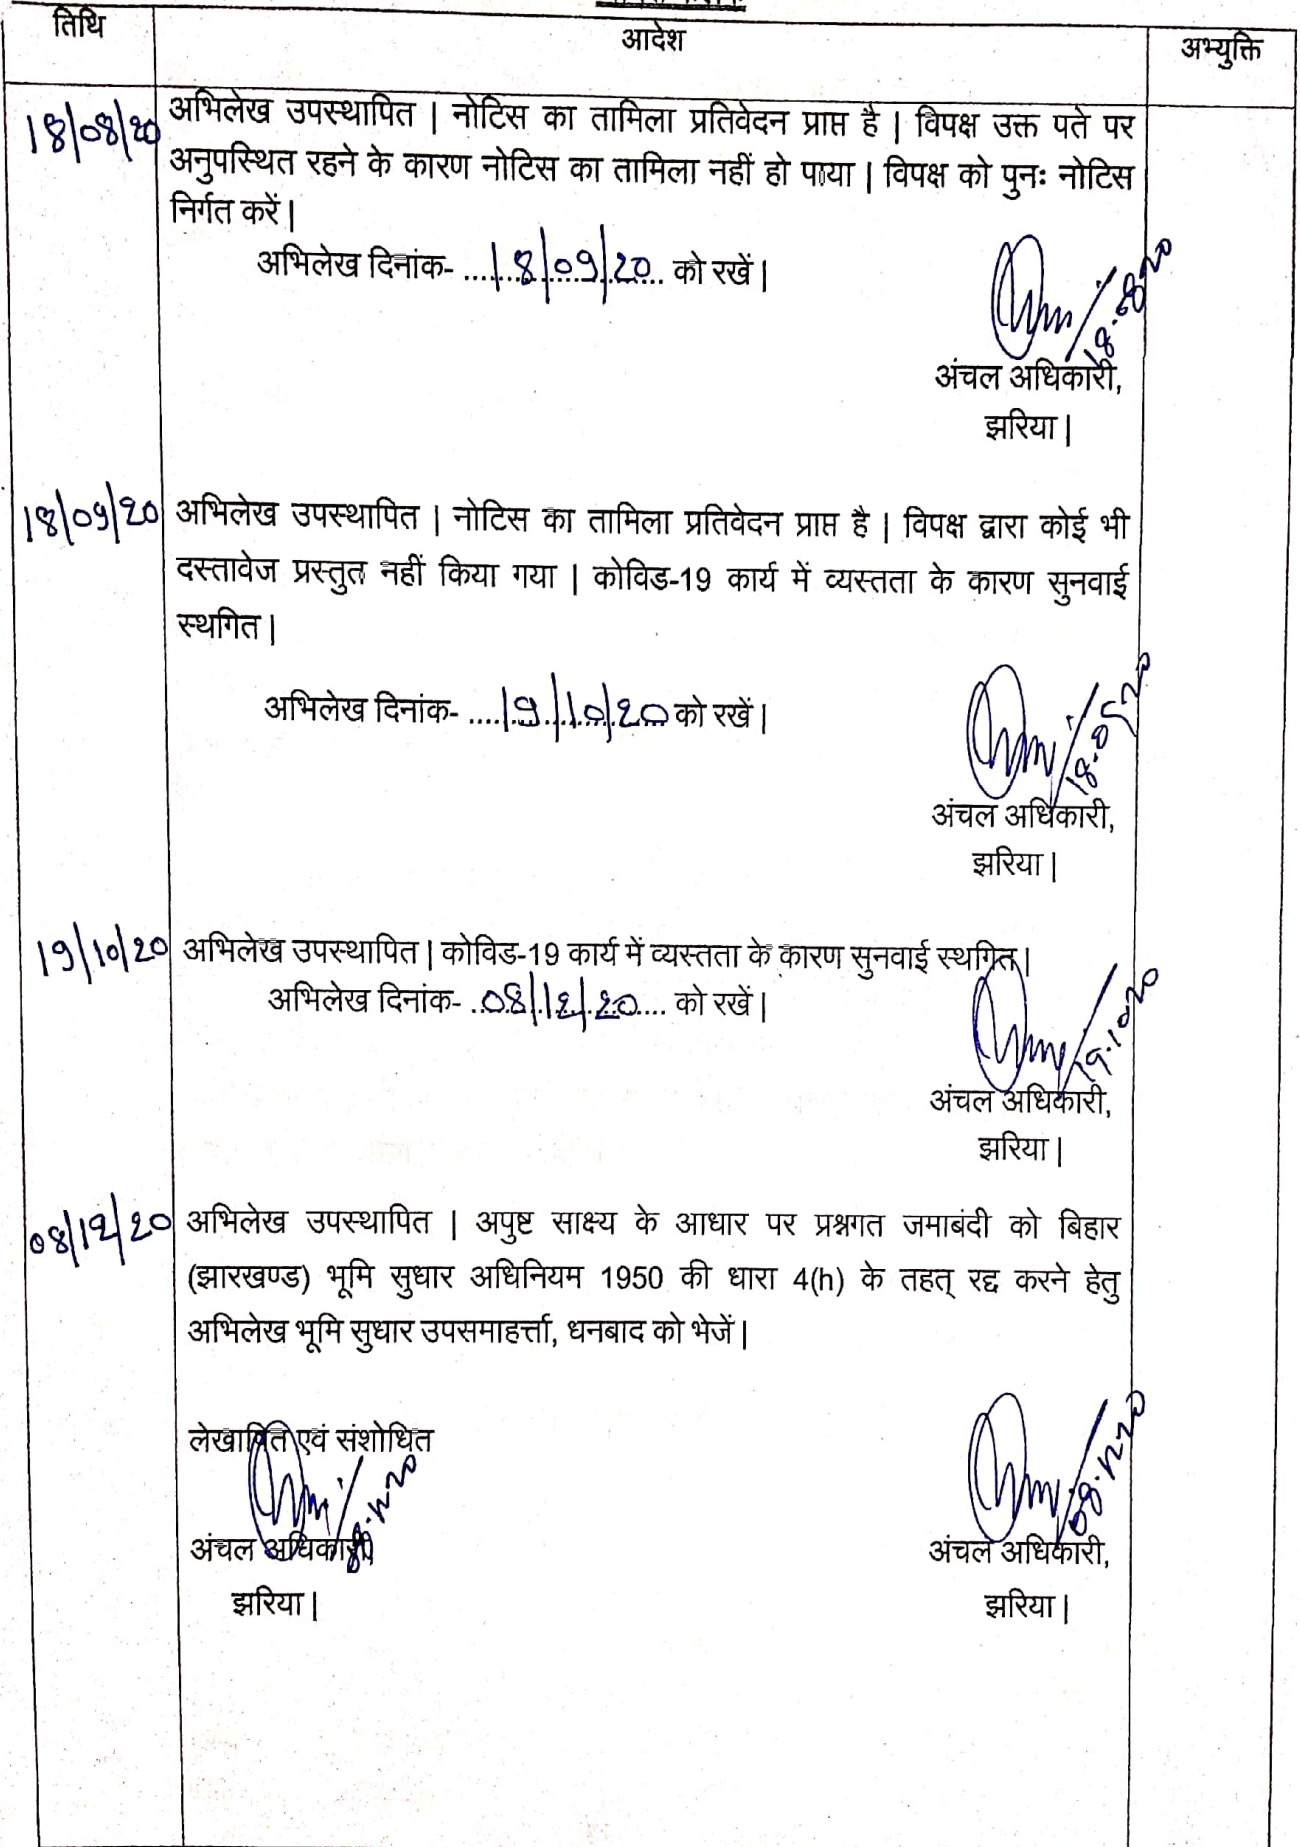 तिथि
आदेश
अभ्युक्ति
18/08/20
अभिलेख उपस्थापित | नोटिस का तामिला प्रतिवेदन प्राप्त है | विपक्ष उक्त पते पर
अनुपस्थित रहने के कारण नोटिस का तामिला नहीं हो पाया | विपक्ष को पुनः नोटिस
निर्गत करें |
अभिलेख दिनांक- ....18/09/20.. को रखें |
18.08.20
अंचल अधिकारी,
झरिया |
18/09/20
अभिलेख उपस्थापित | नोटिस का तामिला प्रतिवेदन प्राप्त है | विपक्ष द्वारा कोई भी
दस्तावेज प्रस्तुत नहीं किया गया | कोविड-19 कार्य में व्यस्तता के कारण सुनवाई
स्थगित |
अभिलेख दिनांक- ....19/10/20 को रखें |
18.09.20
अंचल अधिकारी,
झरिया |
19/10/20
अभिलेख उपस्थापित | कोविड-19 कार्य में व्यस्तता के कारण सुनवाई स्थगित |
अभिलेख दिनांक- ..08/12/20.... को रखें |
19.10.20
अंचल अधिकारी,
झरिया |
08/12/20
अभिलेख उपस्थापित | अपुष्ट साक्ष्य के आधार पर प्रश्नगत जमाबंदी को बिहार
(झारखण्ड) भूमि सुधार अधिनियम 1950 की धारा 4(h) के तहत् रद्द करने हेतु
अभिलेख भूमि सुधार उपसमाहर्त्ता, धनबाद को भेजें |
लेखापित एवं संशोधित
08.12.20
08.12.20
अंचल अधिकारी,
अंचल अधिकारी,
झरिया |
झरिया |